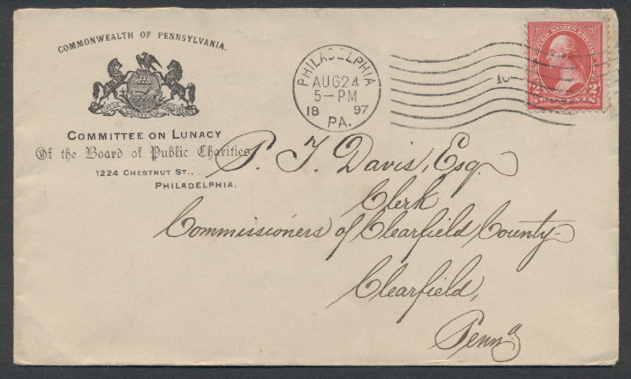 COMMONWEALTH OF PENNSYLVANIA.
COMMITTEE ON LUNACY
Of the Board of Public Charities
1224 CHESTNUT ST.,
PHILADELPHIA.
PHILADELPHIA
AUG 24
5-PM
18 97
PA.
2 2
P. T. Davis, Esq.
Clerk
Commissioners of Clearfield County
Clearfield,
Penna